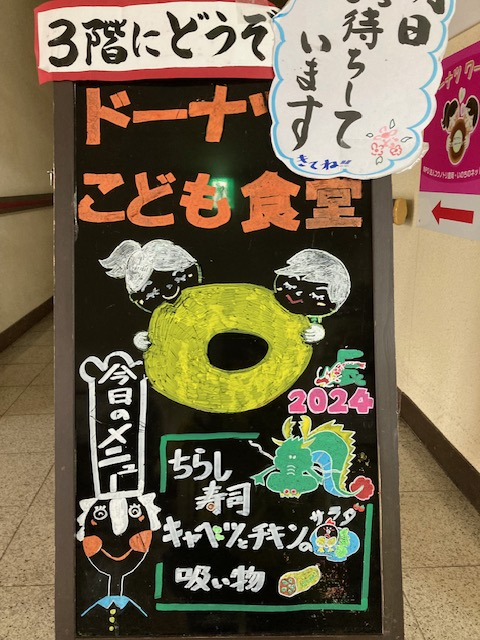 3階にどうぞ
明日
お待ちして
います
きてね
ドーナツ
こども食堂
辰
2024
今日のメニュー
ちらし
寿司
キャベツとチキンの
サラダ
吸い物
ーナツ ワー